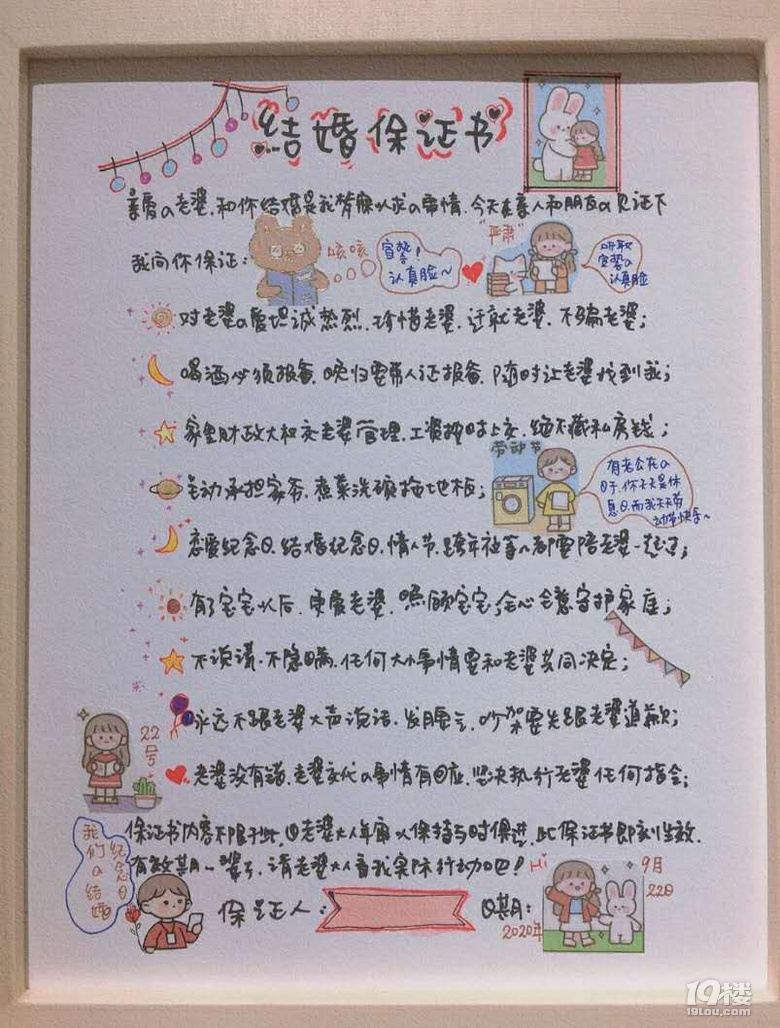 结婚保证书
亲爱の老婆.和你结婚是我梦寐以求の事情.今天在亲人和朋友の见证下
我向你保证:
咳咳
宣誓!
认真脸~
"严肃"
听取
宣誓の
认真脸
对老婆の爱坦诚热烈.珍惜老婆.迁就老婆.不骗老婆;
喝酒必须报备.晚归要带人证报备.随时让老婆找到我;
家里财政大权交老婆管理.工资按时上交.绝不藏私房钱;
劳动节
主动承担家务.煮菜洗碗拖地板;
有老公在の
日子.你天天是休
息日.而我天天劳
动节快乐~
恋爱纪念日.结婚纪念日.情人节.跨年社等~都要陪老婆一起过;
有了宝宝以后.更爱老婆.照顾宝宝;全心全意守护家庭;
不说谎.不隐瞒.任何大小事情要和老婆共同决定;
永远不跟老婆大声说话.发脾气.吵架要先跟老婆道歉;
22
号
老婆没有错.老婆交代の事情有回应.坚决执行老婆任何指令;
保证书内容不限于此.由老婆大人年审以保持与时俱进.此保证书即刻生效.
有效期一辈子.请老婆大人看我实际行动吧!
我们の结婚
纪念日
Hi
9月
22日
保证人:
日期:
2020年
19楼
19lou.com